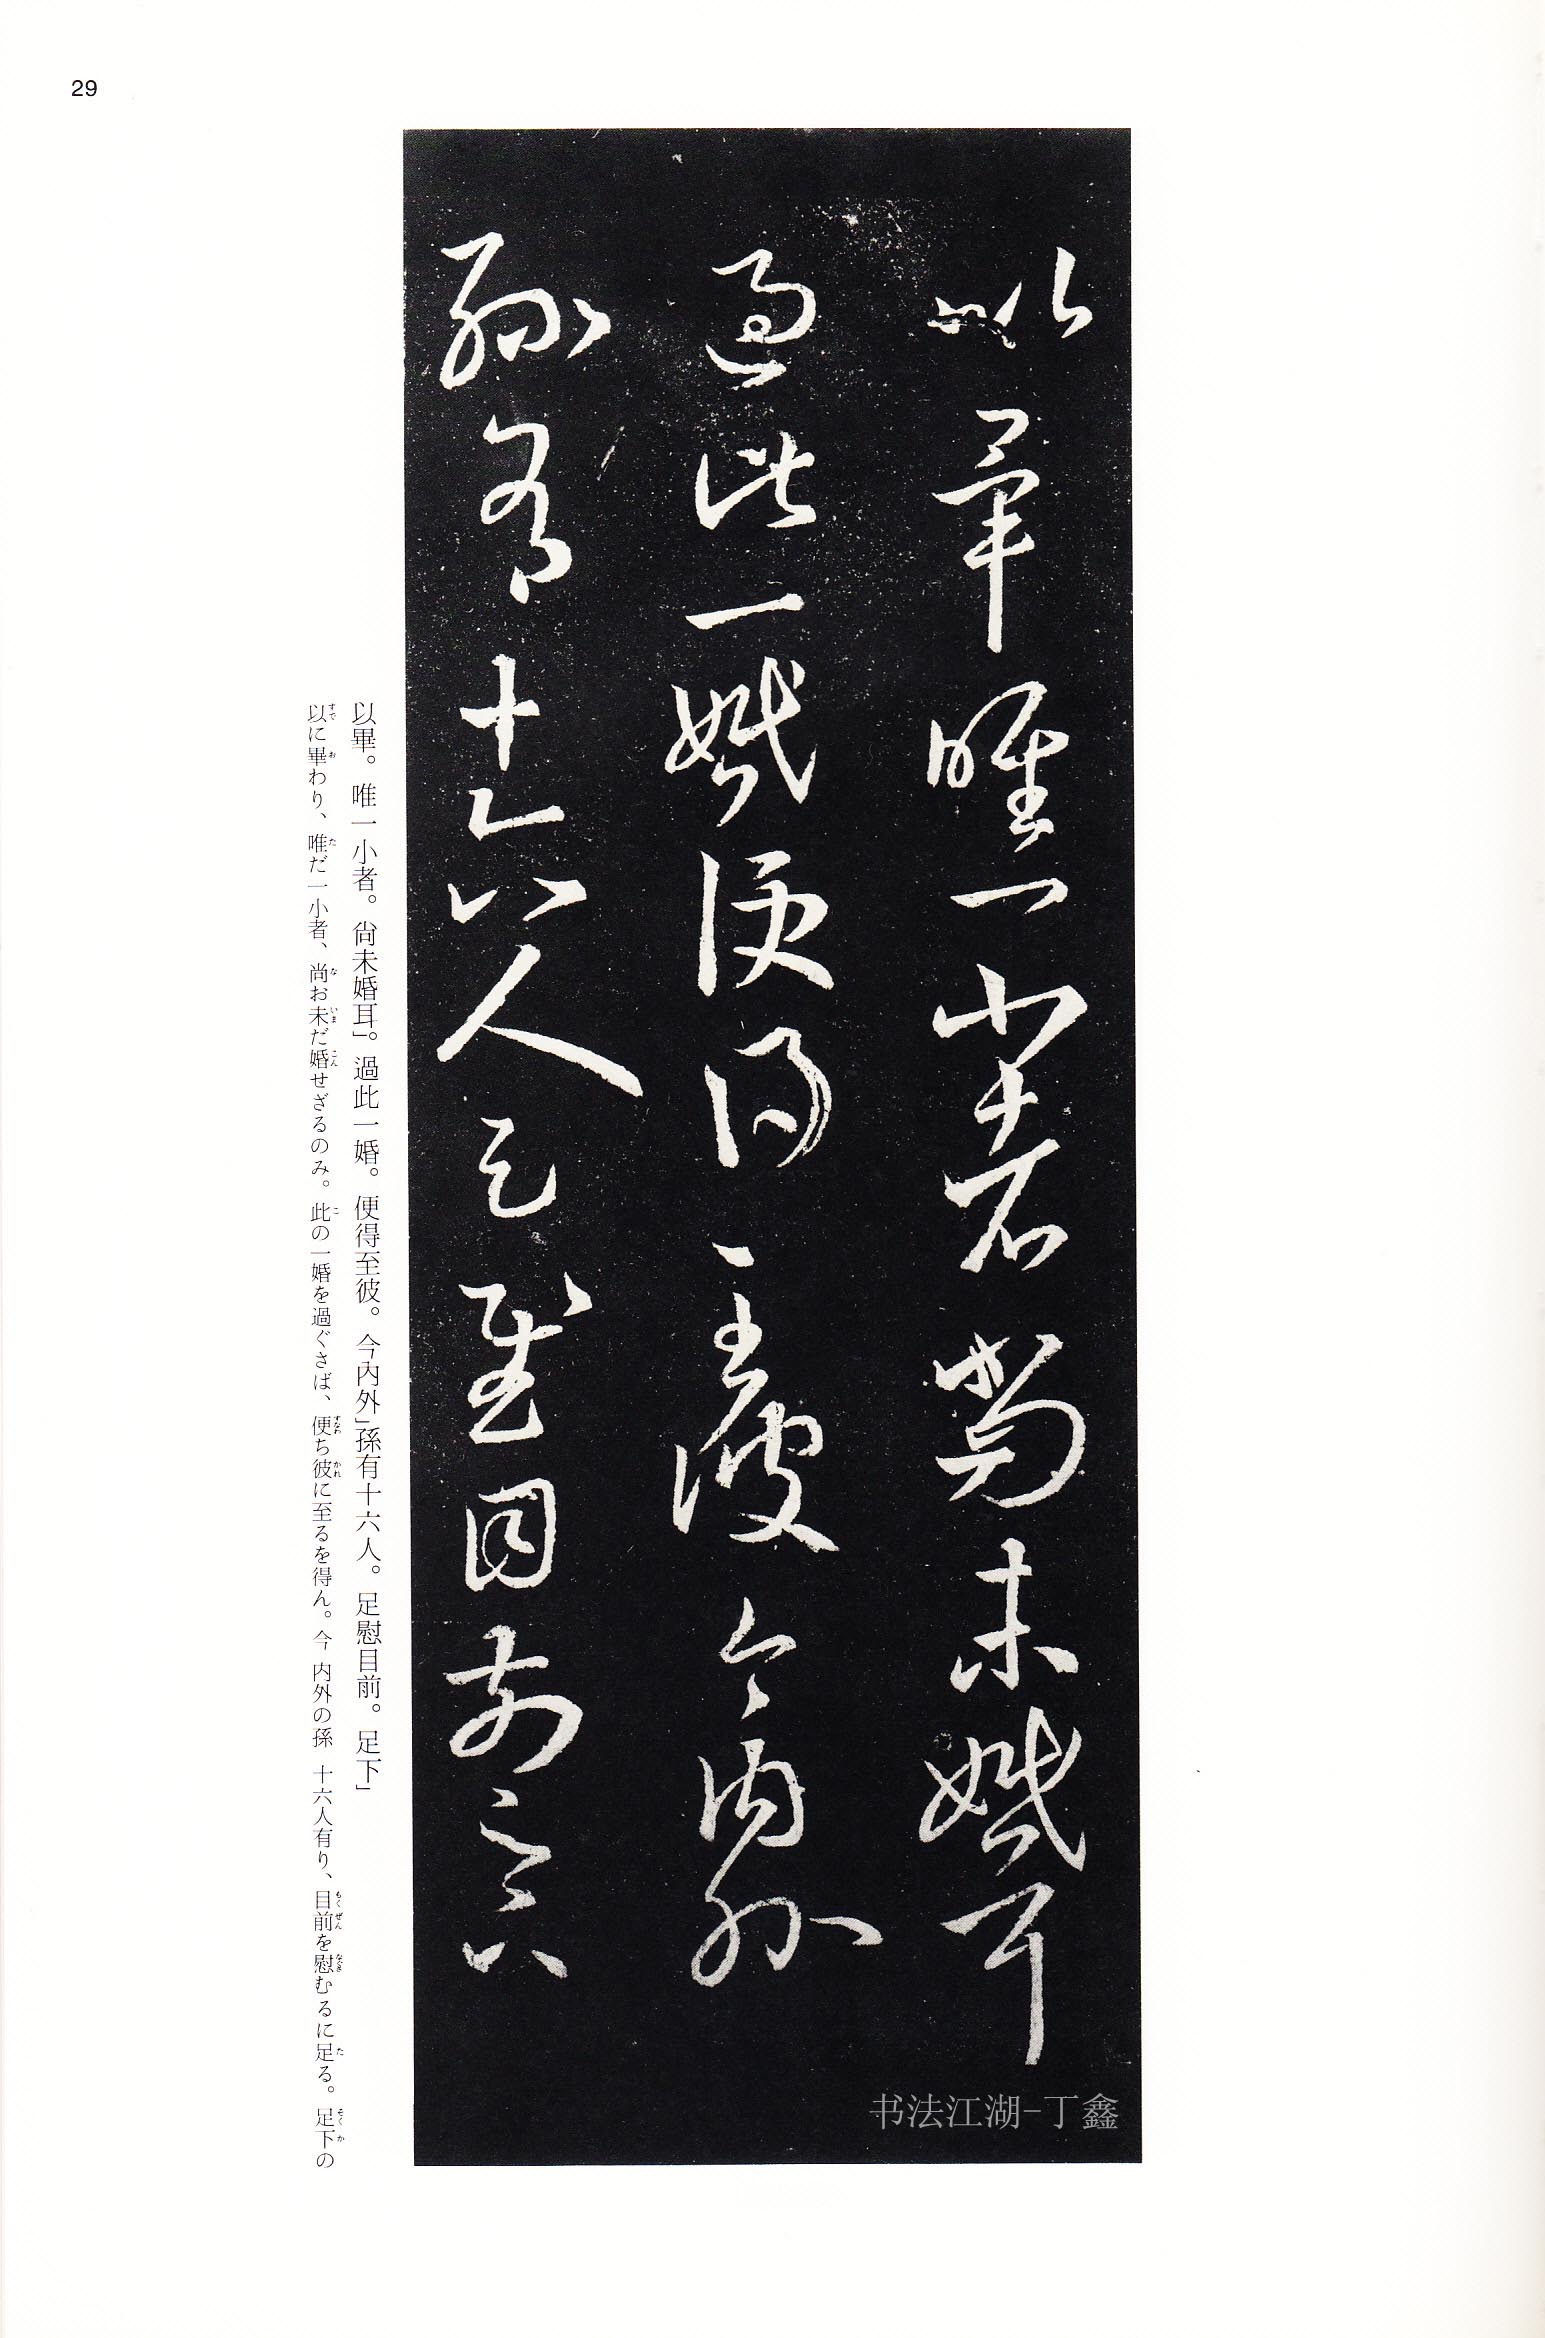 29
以畢唯一小者尚未婚耳
過此一婚便得至彼今內外
孫有十六人足慰目前足下
以畢。唯一小者。尙未婚耳」。過此一婚。便得至彼。今內外」孫有十六人。足慰目前。足下」
以に畢わり、唯だ一小者、尚お未だ婚せざるのみ。此の一婚を過ぐさば、便ち彼に至るを得ん。今 内外の孫 十六人有り、目前を慰むるに足る。足下の
书法江湖-丁鑫